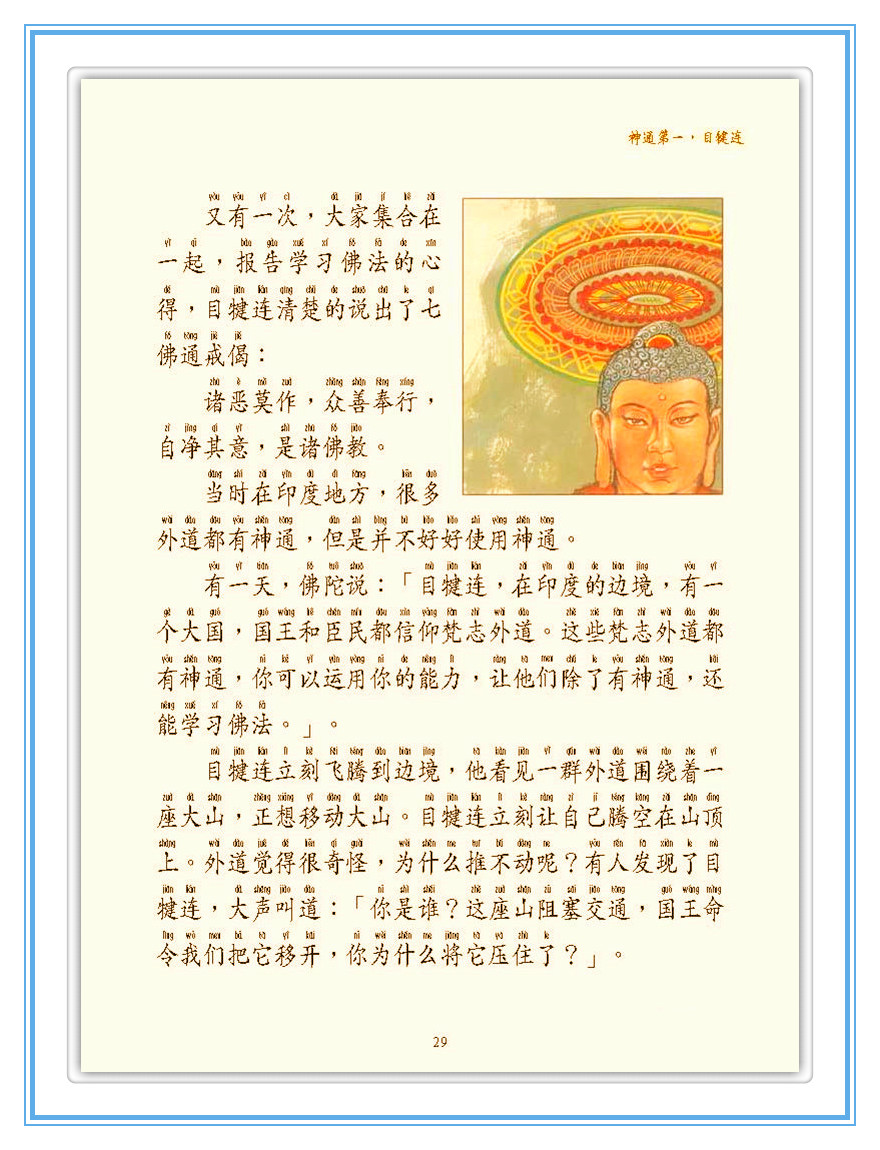 神通第一，目犍连
又有一次，大家集合在
一起，报告学习佛法的心
得，目犍连清楚的说出了七
佛通戒偈：
诸恶莫作，众善奉行，
自净其意，是诸佛教。
当时在印度地方，很多
外道都有神通，但是并不好好使用神通。
有一天，佛陀说：「目犍连，在印度的边境，有一
个大国，国王和臣民都信仰梵志外道。这些梵志外道都
有神通，你可以运用你的能力，让他们除了有神通，还
能学习佛法。」。
目犍连立刻飞腾到边境，他看见一群外道围绕着一
座大山，正想移动大山。目犍连立刻让自己腾空在山顶
上。外道觉得很奇怪，为什么推不动呢？有人发现了目
犍连，大声叫道：「你是谁？这座山阻塞交通，国王命
令我们把它移开，你为什么将它压住了？」。
29